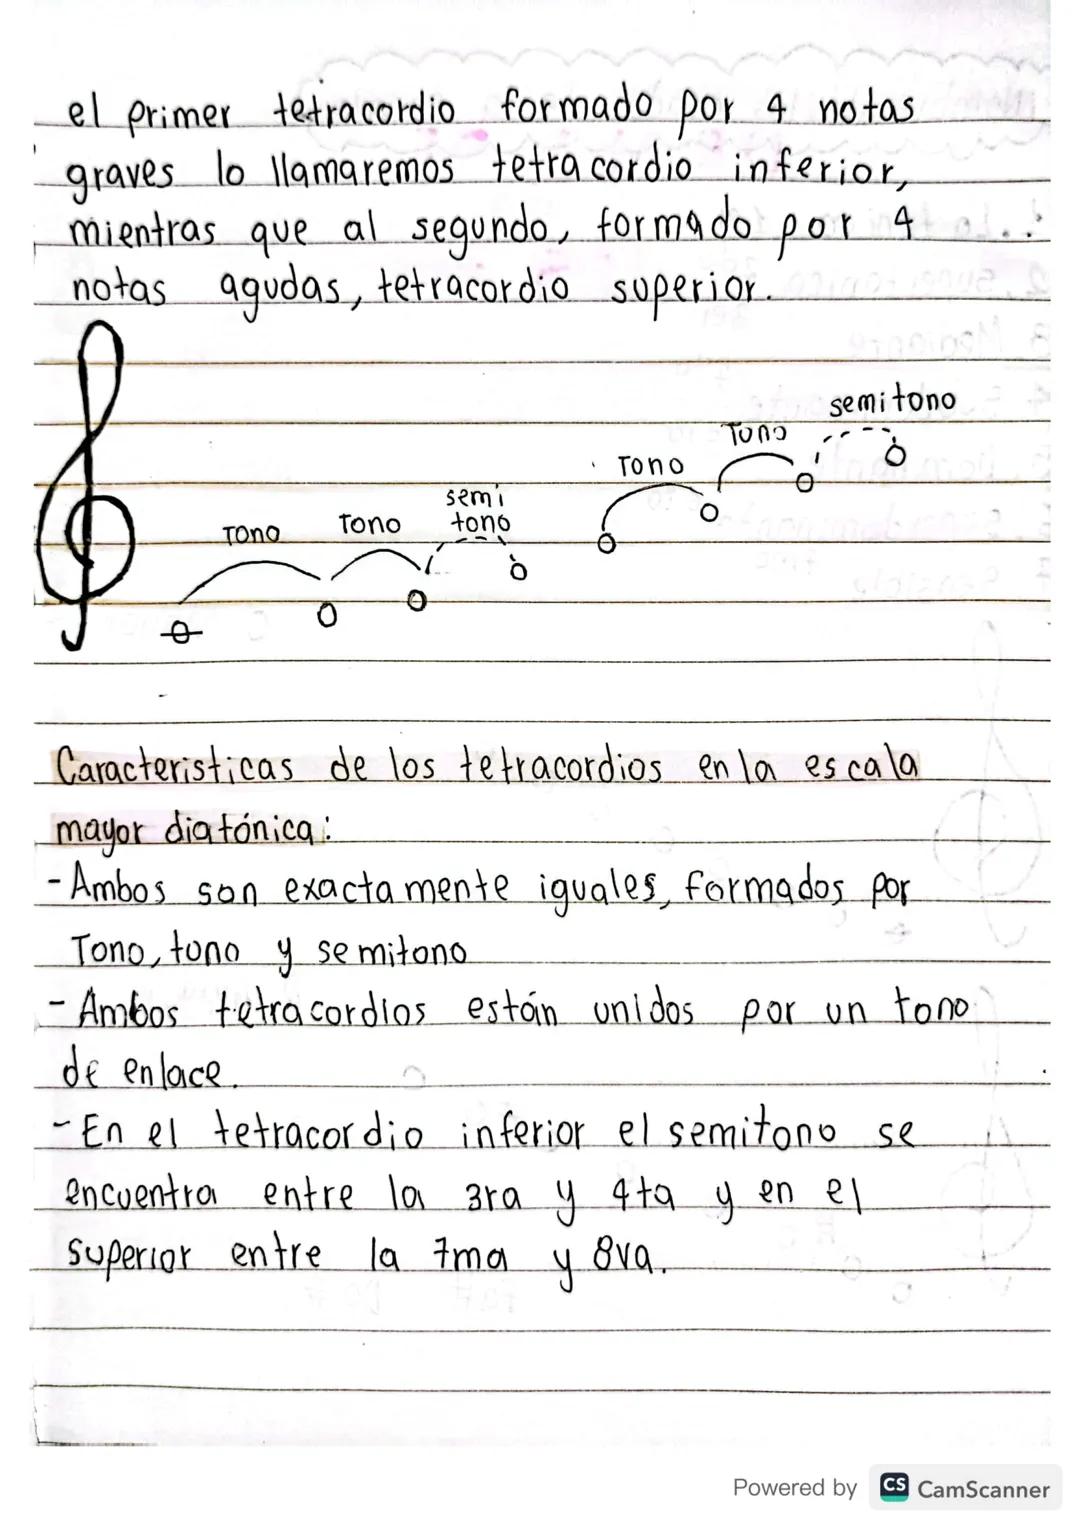 el primer tetracordio formado por 4 notas
graves lo llamaremos tetracordio inferior,
mientras que al segundo, formado por 4
notas agudas, tetracordio superior.
semitono
Tono
Tono
semi
Tono Tono tono
Caracteristicas de los tetracordios en la escala
mayor diatónica:
- Ambos son exactamente iguales, formados por
Tono, tono y semitono
- Ambos tetracordios están unidos por un tono
de enlace.
- En el tetracordio inferior el semitono se
encuentra entre la 3ra y 4ta y en el
superior entre la 7ma y 8va.
Powered by CS CamScanner